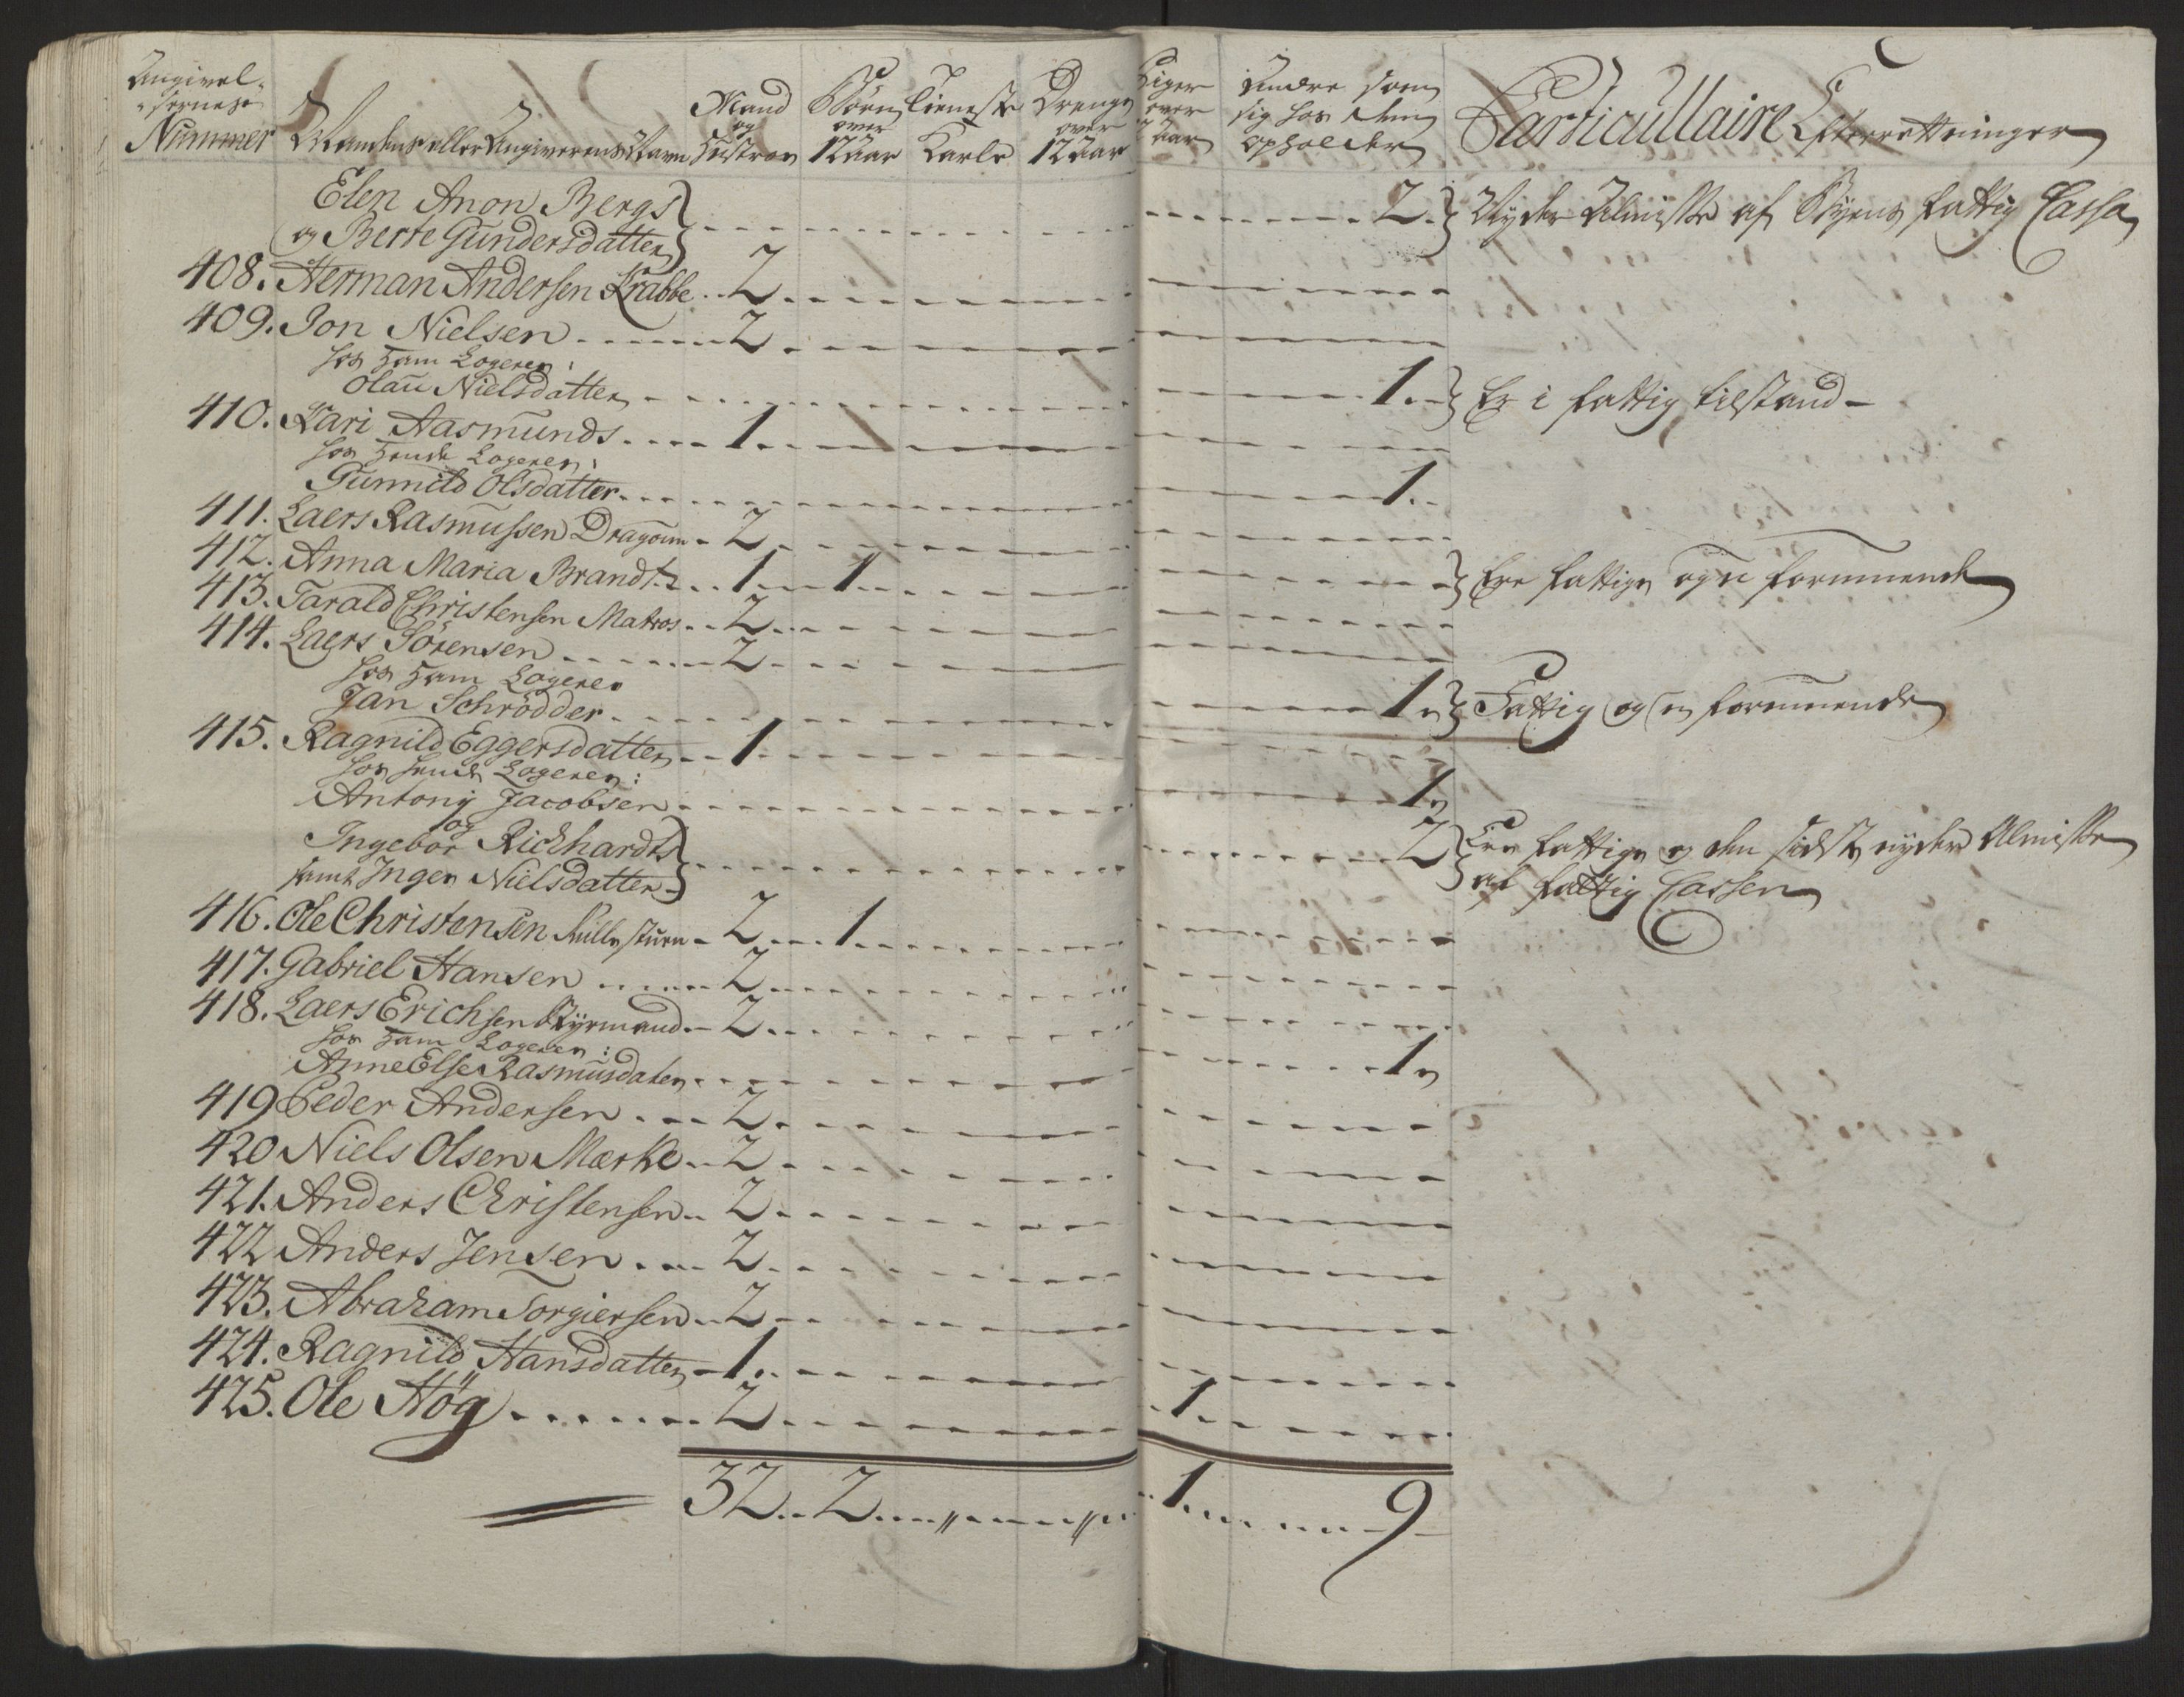 Angivel-
sernese
Nummer
Mandens eller Angiverens Navn
Mand
og
Hustroe
Børn
over
12 Aar
Tieneste
Karle
Drenge
over
12 Aar
Piger
over
12 Aar
Andre som
sig hos dem
opholder
Particullaire Efterrettninger
Elen Anon Bergs
og Berte Gundersdatter - - - 2. Nyder Almisse af Byens fattig Cassa
408. Herman Andersen Krabbe . . 2
409. Jon Nielsen . . . 2
hos ham Logerer:
Olau Nielsdatter - - - 1. Er i fattig tilstand -
410. Kari Aasmunds . . . 1
hos hende Logerer:
Gunnild Olsdatter . . . 1
411. Laers Rasmussen Dragoun - 2
412. Anna Maria Brandt . . 1 . . 1 - - - Ere fattige og u formuende
413. Tarald Christensen Matros . . 2
414. Laers Sörensen . . . 2
hos ham Logerer
Jan Schrödder . . . 1 Fattig og u formuende
415. Ragnild Eggersdatter . . 1
hos hende Logerer:
Antony Jacobsen . . . 1
og
Ingebor Richhardts
samt Inger Nielsdatter - - - 2 Ere fattige og den sidste nyder Almisse
af fattig Cassen
416. Ole Christensen - 2 . . . 1
417. Gabriel Hansen . . . 2
418. Laers Erichsen Styrmand . - 2
hos ham Logerer:
Anne Else Rasmusdater . . . 1
419 Peder Andersen . . . 2
420 Niels Olsen Mærke . . 2
421. Anders Christensen . . 2
422 Anders Jensen . . . 2
423. Abraham Torgiersen . . 2
424. Ragnild Hansdatter - 1
425. Ole Hög . . . 2 - - - 1
32 . . 2 . . . " . . . " . . 1 . . . 9